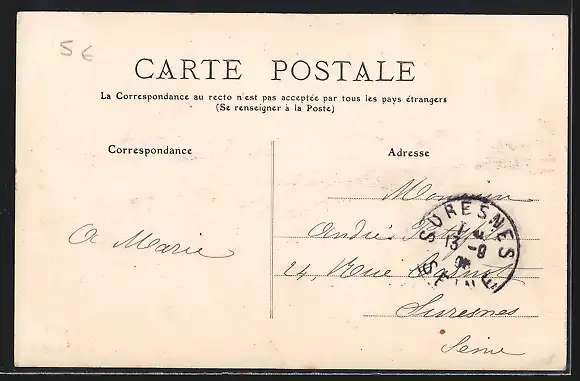 5 €
CARTE POSTALE
La Correspondance au recto n'est pas acceptée par tous les pays étrangers
(Se renseigner à la Poste)
Correspondance
Adresse
Monsieur
André
24, Rue Carnot
Suresnes
Seine
A Marie
SURESNES
13 -9
SEINE